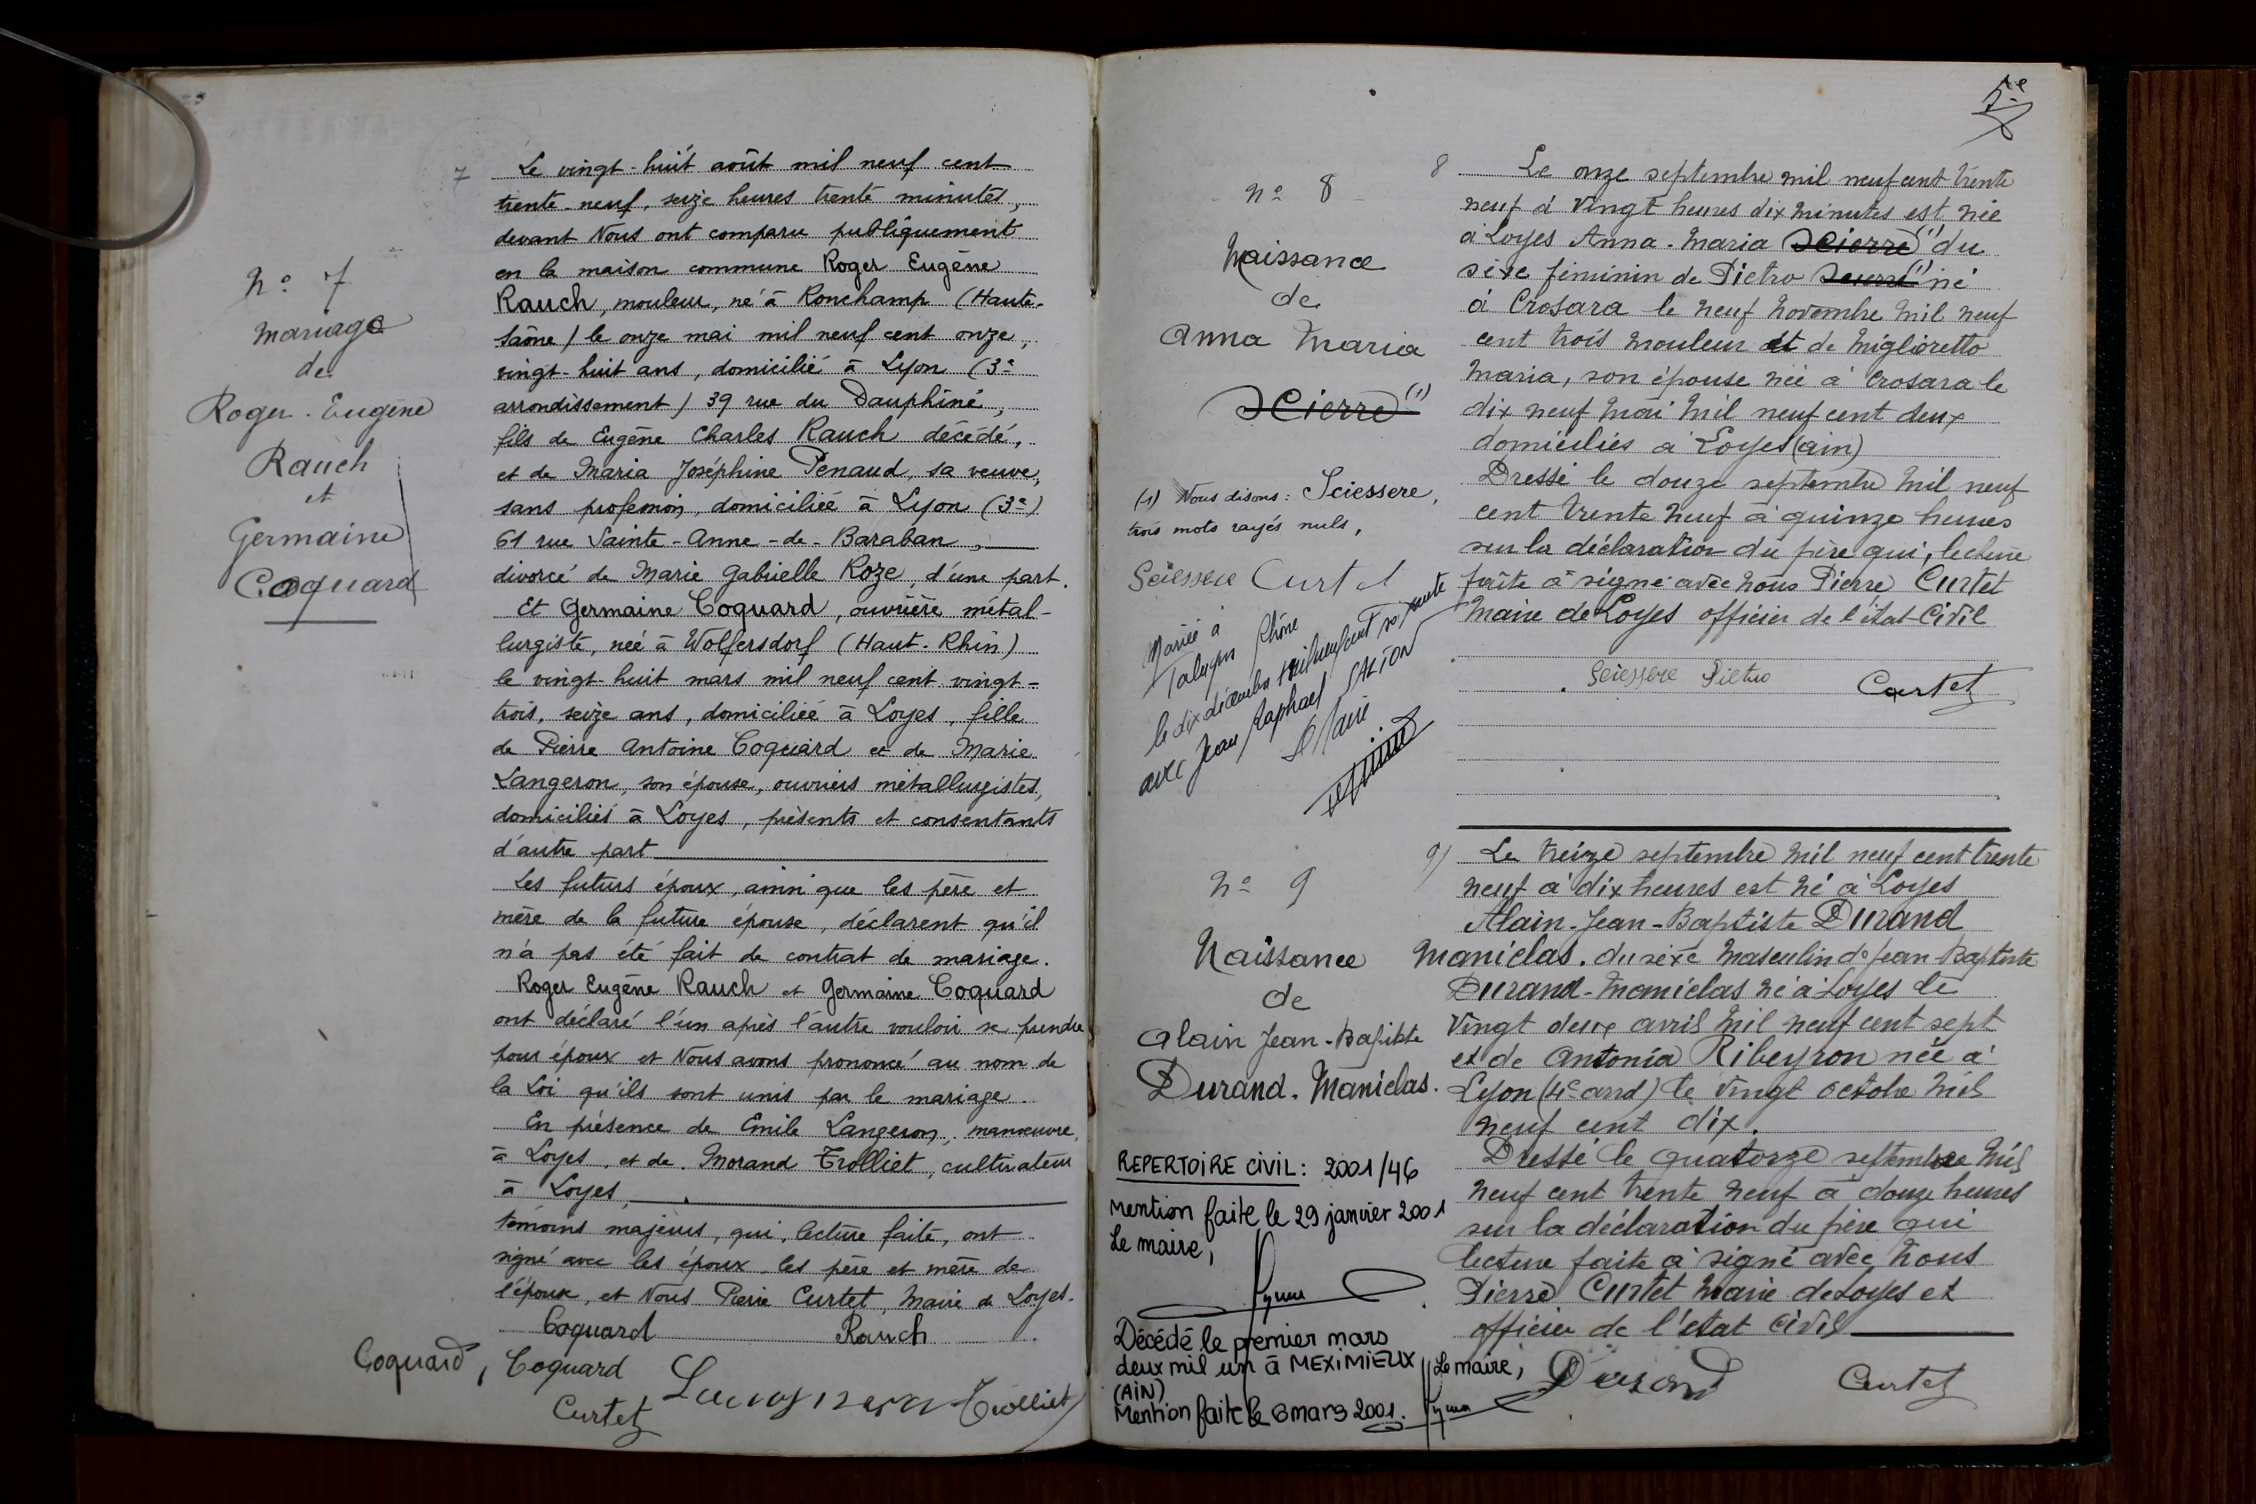 7
N° 7
mariage
de
Roger-Eugène
Rauch
et
Germaine
Coquard
Le vingt-huit août mil neuf cent
trente-neuf, seize heures trente minutes,
devant Nous ont comparu publiquement
en la maison commune Roger Eugène
Rauch, mouleur, né à Ronchamp (Haute-
Saône) le onze mai mil neuf cent onze,
vingt-huit ans, domicilié à Lyon (3e
arrondissement) 39 rue du Dauphiné,
fils de Eugène Charles Rauch décédé,
et de Maria Joséphine Penaud, sa veuve,
sans profession, domiciliée à Lyon (3e)
61 rue Sainte-Anne-de-Baraban,
divorcé de Marie Gabrielle Roze, d'une part.
Et Germaine Coquard, ouvrière métal-
lurgiste, née à Wolfersdorf (Haut-Rhin)
le vingt-huit mars mil neuf cent vingt-
trois, seize ans, domiciliée à Loyes, fille
de Pierre Antoine Coquard et de Marie
Langeron, son épouse, ouvriers métallurgistes,
domiciliés à Loyes, présents et consentants
d'autre part
Les futurs époux, ainsi que les père et
mère de la future épouse, déclarent qu'il
n'a pas été fait de contrat de mariage.
Roger Eugène Rauch et Germaine Coquard
ont déclaré l'un après l'autre vouloir se prendre
pour époux et Nous avons prononcé au nom de
la Loi qu'ils sont unis par le mariage.
En présence de Emile Langeron, manœuvre,
à Loyes, et de Morand Trolliet, cultivateur
à Loyes,
témoins majeurs, qui, lecture faite, ont
signé avec les époux les père et mère de
l'épouse, et Nous Pierre Curtet, Maire de Loyes.
Coquard Rauch
Coquard, Coquard
Curtet Langeron Trolliet
5e
8
N° 8
Naissance
de
Anna Maria
Scierre (1)
(1) Nous disons: Sciessere,
trois mots rayés nuls,
Sciessere Curtet
Mariée à
Taluyers Rhône
le dix décembre mil neuf cent soixante
avec Jean Raphael SALTON
Le Maire
Le onze septembre mil neuf cent trente
neuf à vingt heures dix minutes est née
à Loyes Anna-Maria Scierre (1) du
sexe féminin de Pietro Scierre (1) né
à Crosara le neuf novembre mil neuf
cent trois mouleur et de Miglioretto
Maria, son épouse née à Crosara le
dix neuf mai mil neuf cent deux
domiciliés à Loyes (ain)
Dressé le douze septembre mil neuf
cent trente neuf à quinze heures
sur la déclaration du père qui, lecture
faite à signé avec nous Pierre Curtet
Maire de Loyes officier de l'état-Civil
Sciessere Pietro Curtet
9/
N° 9
Naissance
de
Alain Jean-Baptiste
Durand-Maniclas.
REPERTOIRE CIVIL: 2001/46
Mention faite le 29 janvier 2001
Le maire,
Décédé le premier mars
deux mil un à MEXIMIEUX
(AIN)
Mention faite le 6 mars 2001.
Le maire,
Le treize septembre mil neuf cent trente
neuf à dix heures est né à Loyes
Alain-Jean-Baptiste Durand
Maniclas. du sexe masculin de Jean-Baptiste
Durand-Maniclas né à Loyes le
vingt deux avril mil neuf cent sept
et de Antonia Ribeyron née à
Lyon (4e arrd) le vingt octobre mil
neuf cent dix.
Dressé le quatorze septembre mil
neuf cent trente neuf à douze heures
sur la déclaration du père qui
lecture faite à signé avec nous
Pierre Curtet Maire de Loyes et
officier de l'état Civil
Durand Curtet